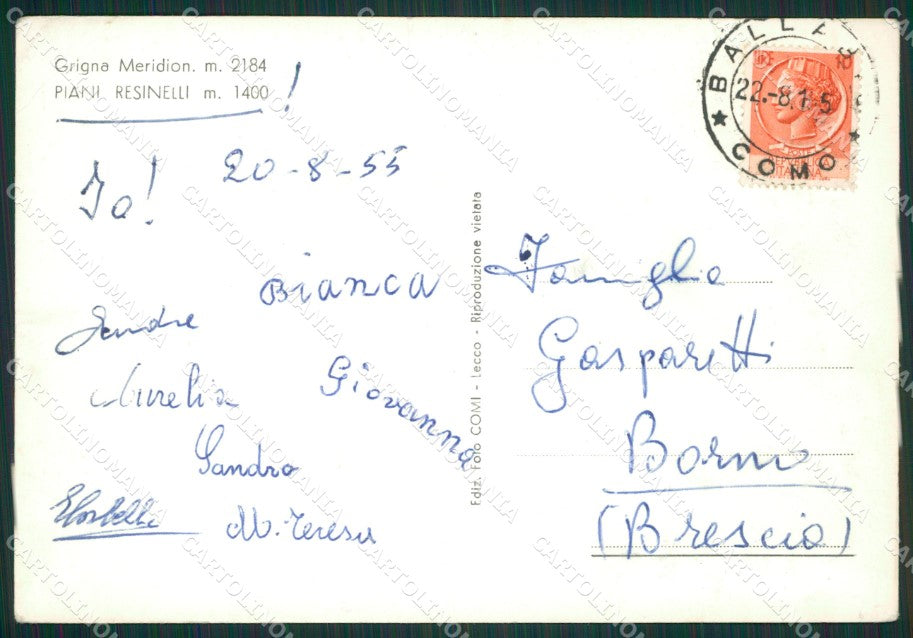 Grigna Meridion. m. 2184
PIANI RESINELLI m. 1400 !
20-8-55
Io!
Bianca
Sandra
Aurelia
Giovanna
Sandro
M. Teresa
Ediz. Foto COMI - Lecco - Riproduzione vietata
22.-8.1-5
COMO
REPUBBLICA
ITALIANA
Famiglia
Gasparetti
Borno
(Brescia)
CARTOLINOMANIA